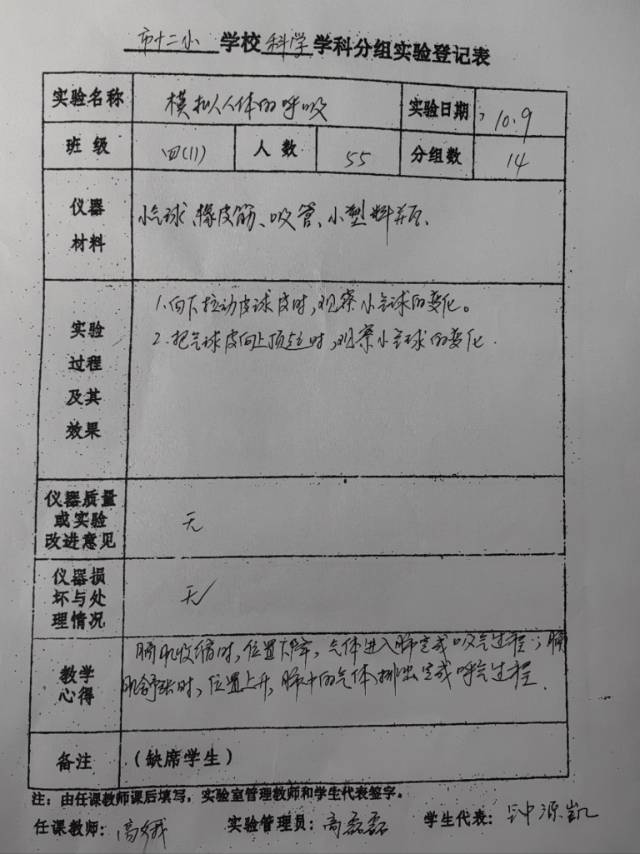 市十二小 学校 科学 学科分组实验登记表
实验名称 模拟人体的呼吸 实验日期 10.9
班级 四(11) 人数 55 分组数 14
仪器材料 小气球、橡皮筋、吸管、小塑料瓶、
实验过程及其效果
1.向下拉动皮球皮时,观察小气球的变化。
2.把气球皮向上顶时,观察小气球的变化.
仪器质量
或实验
改进意见
无
仪器损
坏与处
理情况
无
教学心得
膈肌收缩时,位置下降,气体进入肺完成吸气过程;膈
肌舒张时,位置上升,肺中的气体排出完成呼气过程.
备注 (缺席学生)
注:由任课教师课后填写,实验室管理教师和学生代表签字。
任课教师: 高娥 实验管理员: 高磊磊 学生代表: 钟源凯